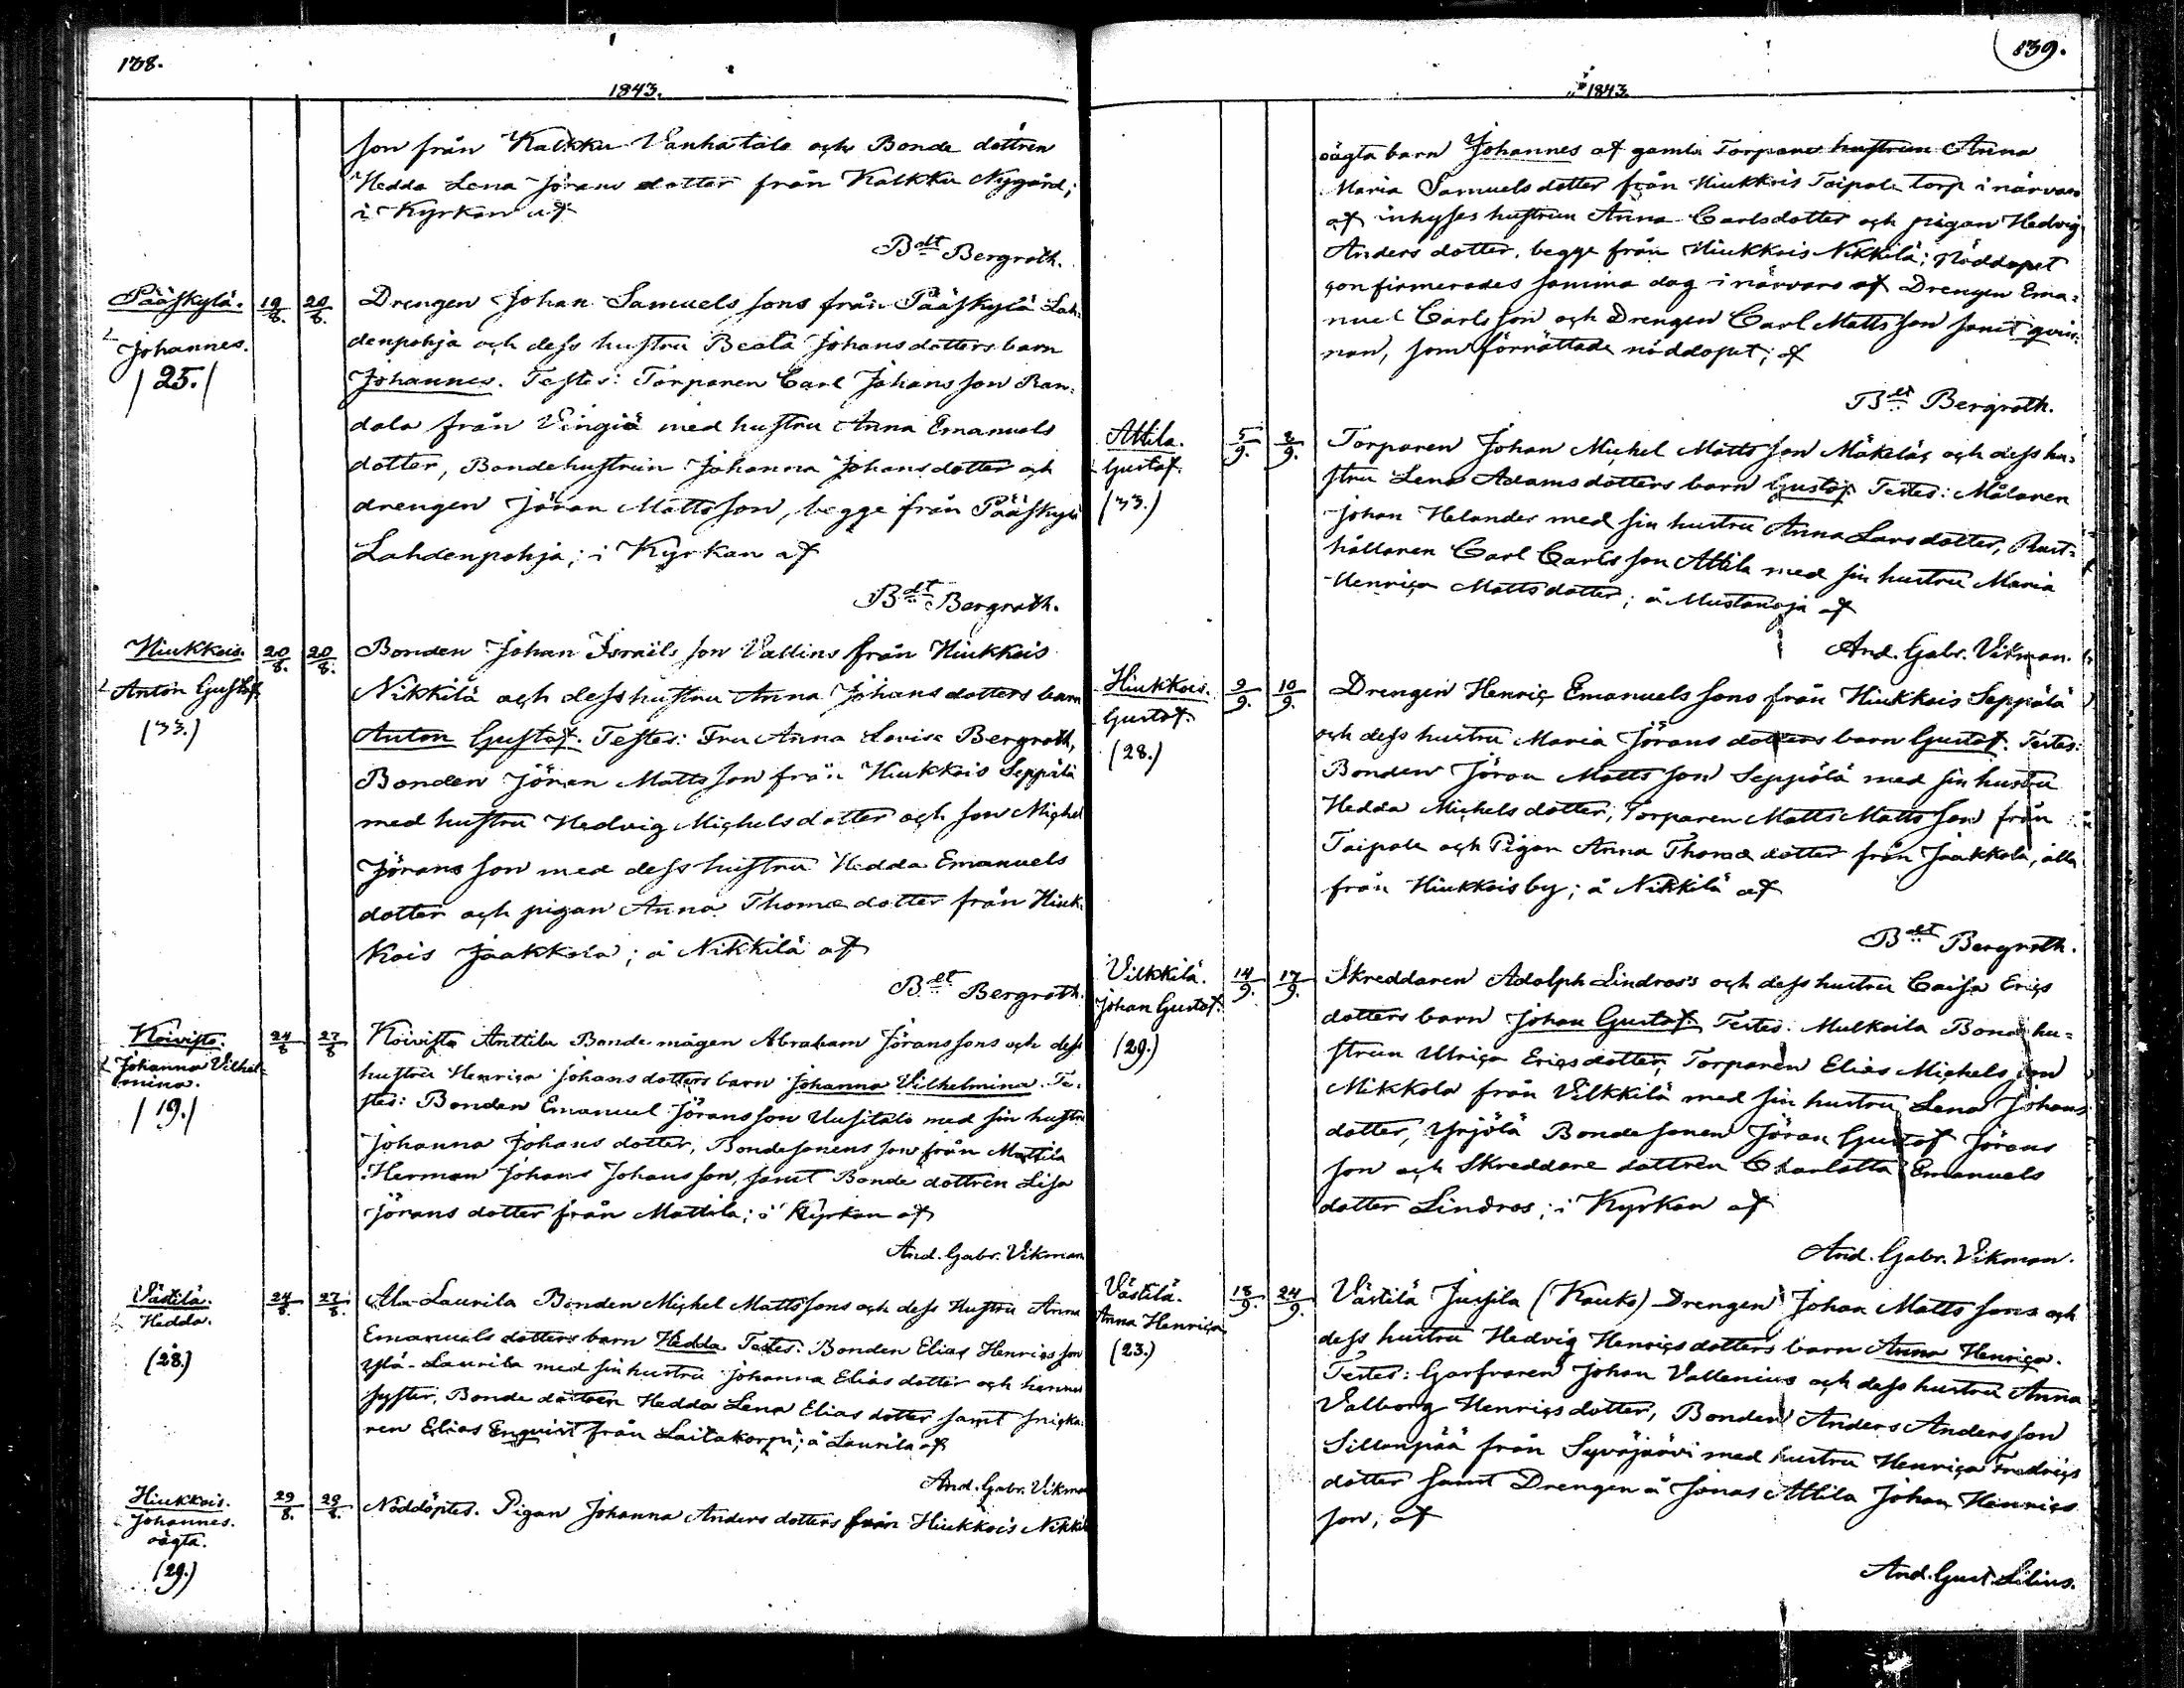 138.
1843.
son från Kalkku Vanhatalo och Bonde dottren
Hedda Lena Jörans dotter från Kalkku Nygård;
i Kyrkan af
Bdt Bergroth.
Pääskylä.
Johannes.
/25./
19/8. 20/8.
Drengen Johan Samuels sons från Pääskylä Lah-
denpohja och dess hustru Beata Johans dotters barn
Johannes. Testes: Torparen Carl Johans son Ran-
dala från Vingiä med hustru Anna Emanuels
dotter, Bondehustrun Johanna Johans dotter och
drengen Jöran Matts son, begge från Pääskylä
Lahdenpohja; i Kyrkan af
Bdt Bergroth.
Hiukkois.
Anton Gustaf.
(33.)
20/8. 20/8.
Bonden Johan Israels son Vallins från Hiukkois
Nikkilä och dess hustru Anna Johans dotters barn
Anton Gustaf. Testes: Fru Anna Lovisa Bergroth,
Bonden Jöran Matts son från Hiukkois Seppälä
med hustru Hedvig Michels dotter och son Michel
Jörans son med dess hustru Hedda Emanuels
dotter och pigan Anna Thomæ dotter från Hiuk-
kois Jaakkola; å Nikkilä af
Bdt Bergroth.
Koivisto.
Johanna Vilhel-
mina.
/19./
24/8 27/8
Koivisto Anttila Bonde mågen Abraham Jörans sons och dess
hustru Henrica Johans dotters barn Johanna Vilhelmina. Te-
stes: Bonden Emanuel Jörans son Uusitalo med sin hustru
Johanna Johans dotter, Bondesonens son från Mattila
Herman Johans Johans son, samt Bonde dottren Lisa
Jörans dotter från Mattila; i Kyrkan af
And. Gabr. Vikman
Västilä.
Hedda.
(28.)
24/8. 27/8.
Ala-Laurila Bonden Michel Matts sons och dess Hustru Anna
Emanuels dotters barn Hedda. Testes: Bonden Elias Henrics son
Ylä-Laurila med sin hustru Johanna Elias dotter och hennes
syster, Bonde dottren Hedda Lena Elias dotter samt snicka-
ren Elias Enqvist från Laitakorpi; å Laurila af
And. Gabr. Vikman
Hiukkois.
Johannes.
oägta.
(29.)
29/8. 29/8.
Nöddöptes. Pigan Johanna Anders dotters från Hiukkois Nikkilä
139.
1843.
oägta barn Johannes af gamla Torpare hustrun Anna
Maria Samuels dotter från Hiukkois Taipale torp i närvaro
af inhyses hustrun Anna Carlsdotter och pigan Hedvig
Anders dotter, begge från Hiukkois Nikkilä; Nöddopet
confirmerades samma dag i närvaro af Drengen Ema-
nuel Carls son och Drengen Carl Matts son samt qvin-
nan, som förrättade nöddopet; af
Bdt Bergroth.
Attila.
Gustaf.
(33.)
5/9. 8/9.
Torparen Johan Michel Matts son Mäkiläs och dess hu-
stru Lena Adams dotters barn Gustaf. Testes: Målaren
Johan Helander med sin hustru Anna Lars dotter, Rust-
hållaren Carl Carls son Attila med sin hustru Maria
Henrica Matts dotter; å Mustanoja af
And. Gabr. Vikman.
Hiukkois.
Gustaf.
(28.)
9/9. 10/9.
Drengen Henric Emanuels sons från Hiukkois Seppälä
och dess hustru Maria Jörans dotters barn Gustaf. Testes:
Bonden Jöran Matts son Seppälä med sin hustru
Hedda Michels dotter, Torparen Matts Matts son från
Taipale och Pigan Anna Thomæ dotter från Jaakkola, alla
från Hiukkois by; å Nikkilä af
Bdt Bergroth.
Vilkkilä.
Johan Gustaf.
(29.)
14/9. 17/9.
Skreddaren Adolph Lindros's och dess hustru Caisa Erics
dotters barn Johan Gustaf. Testes: Mulkoila Bonde hu-
strun Ulrica Erics dotter, Torparen Elias Michels son
Mikkola från Vilkkilä med sin hustru Lena Johans
dotter, Yrjölä Bonde sonen Jöran Gustaf Jörans
son och Skreddare dottren Charlotta Emanuels
dotter Lindros; i Kyrkan af
And. Gabr. Vikman.
Västilä.
Anna Henrica
(23.)
18/9. 24/9.
Västilä Jussila (Kauko) Drengen Johan Matts sons och
dess hustru Hedvig Henrics dotters barn Anna Henrica.
Testes: Garfvaren Johan Vallenius och dess hustru Anna
Valborg Henrics dotter, Bonden Anders Anders son
Sillanpää från Syväjärvi med hustru Henrica Fredrics
dotter samt Drengen å Jonas Attila Johan Henrics
son, af
And. Gust. Lilius.